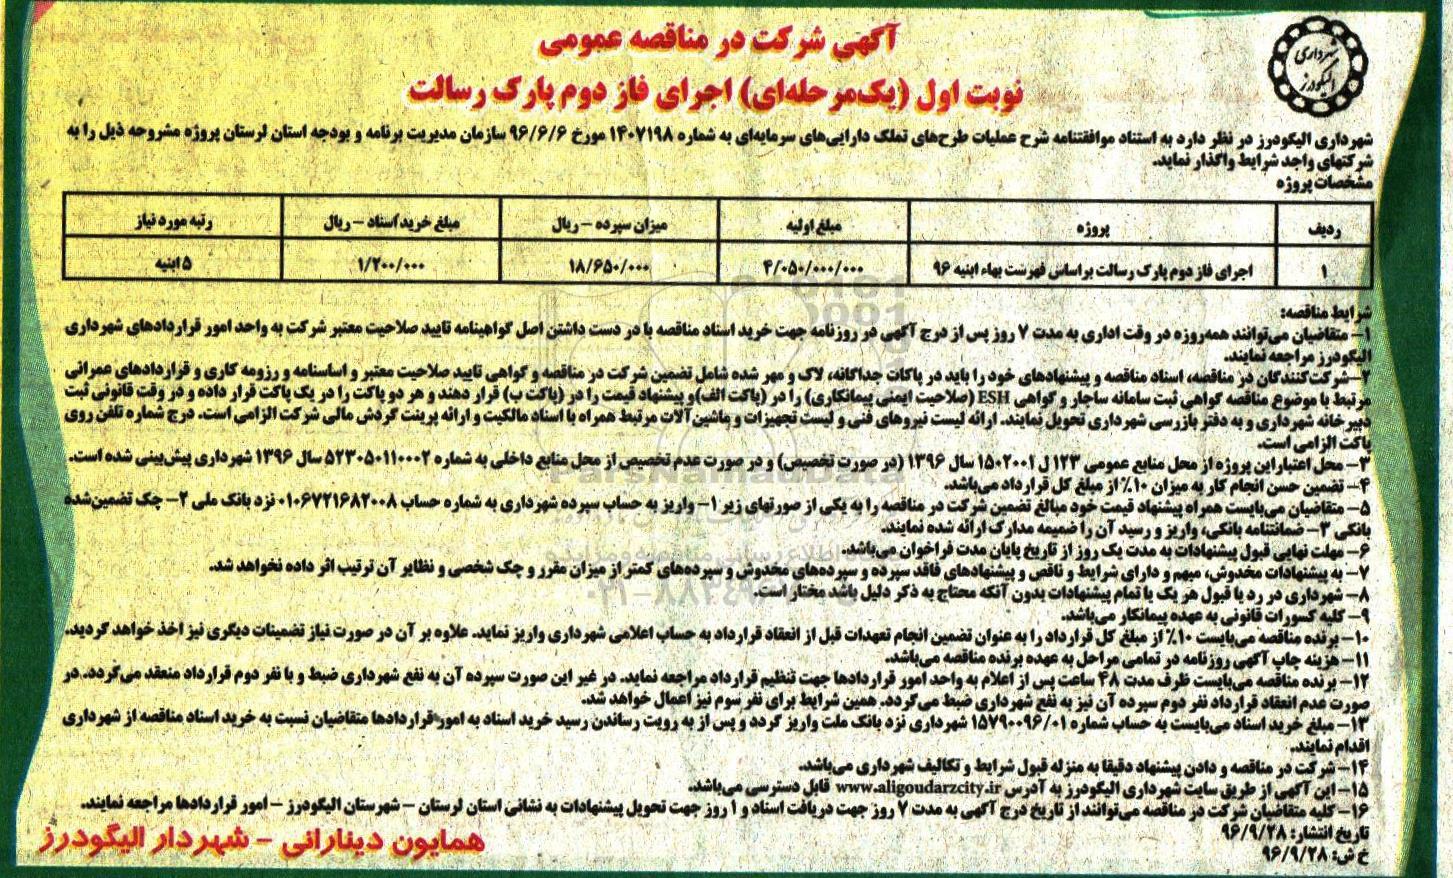 شهرداری
الیگودرز
آگهی شرکت در مناقصه عمومی
نوبت اول (یک‌مرحله‌ای) اجرای فاز دوم پارک رسالت
شهرداری الیگودرز در نظر دارد به استناد موافقتنامه شرح عملیات طرح‌های تملک دارایی‌های سرمایه‌ای به شماره ۱۴۰۷۱۹۸ مورخ ۹۶/۶/۶ سازمان مدیریت برنامه و بودجه استان لرستان پروژه مشروحه ذیل را به
شرکتهای واجد شرایط واگذار نماید.
مشخصات پروژه
ردیف پروژه مبلغ اولیه میزان سپرده – ریال مبلغ خرید اسناد – ریال رتبه مورد نیاز
۱ اجرای فاز دوم پارک رسالت براساس فهرست بهاء ابنیه ۹۶ ۴/۰۵۰/۰۰۰/۰۰۰ ۱۸/۶۵۰/۰۰۰ ۱/۲۰۰/۰۰۰ ۵ ابنیه
شرایط مناقصه:
۱– متقاضیان می‌توانند همه‌روزه در وقت اداری به مدت ۷ روز پس از درج آگهی در روزنامه جهت خرید اسناد مناقصه با در دست داشتن اصل گواهینامه تایید صلاحیت معتبر شرکت به واحد امور قراردادهای شهرداری
الیگودرز مراجعه نمایند.
۲– شرکت‌کنندگان در مناقصه، اسناد مناقصه و پیشنهادهای خود را باید در پاکات جداگانه، لاک و مهر شده شامل تضمین شرکت در مناقصه و گواهی تایید صلاحیت معتبر و اساسنامه و رزومه کاری و قراردادهای عمرانی
مرتبط با موضوع مناقصه گواهی ثبت سامانه ساجار و گواهی ESH (صلاحیت ایمنی پیمانکاری) را در (پاکت الف) و پیشنهاد قیمت را در (پاکت ب) قرار دهند و هر دو پاکت را در یک پاکت قرار داده و در وقت قانونی ثبت
دبیرخانه شهرداری و به دفتر بازرسی شهرداری تحویل نمایند. ارائه لیست نیروهای فنی و لیست تجهیزات و ماشین‌آلات مرتبط همراه با اسناد مالکیت و ارائه پرینت گردش مالی شرکت الزامی است. درج شماره تلفن روی
پاکت الزامی است.
۳– محل اعتبار این پروژه از محل منابع عمومی ۱۲۳ ل ۱۵۰۲۰۰۱ سال ۱۳۹۶ (در صورت تخصیص) و در صورت عدم تخصیص از محل منابع داخلی به شماره ۵۲۳۰۵۰۱۱۰۰۰۲ سال ۱۳۹۶ شهرداری پیش‌بینی شده است.
۴– تضمین حسن انجام کار به میزان ۱۰٪ از مبلغ کل قرارداد می‌باشد.
۵– متقاضیان می‌بایست همراه پیشنهاد قیمت خود مبالغ تضمین شرکت در مناقصه را به یکی از صورتهای زیر ۱– واریز به حساب سپرده شهرداری به شماره حساب ۰۱۰۶۷۲۱۶۸۲۰۰۸ نزد بانک ملی ۲– چک تضمین‌شده
بانکی ۳– ضمانتنامه بانکی، واریز و رسید آن را ضمیمه مدارک ارائه شده نمایند.
۶– مهلت نهایی قبول پیشنهادات به مدت یک روز از تاریخ پایان مدت فراخوان می‌باشد.
۷– به پیشنهادات مخدوش، مبهم و دارای شرایط و ناقص و پیشنهادهای فاقد سپرده و سپرده‌های مخدوش و سپرده‌های کمتر از میزان مقرر و چک شخصی و نظایر آن ترتیب اثر داده نخواهد شد.
۸– شهرداری در رد یا قبول هر یک یا تمام پیشنهادات بدون آنکه محتاج به ذکر دلیل باشد مختار است.
۹– کلیه کسورات قانونی به عهده پیمانکار می‌باشد.
۱۰– برنده مناقصه می‌بایست ۱۰٪ از مبلغ کل قرارداد را به عنوان تضمین انجام تعهدات قبل از انعقاد قرارداد به حساب اعلامی شهرداری واریز نماید. علاوه بر آن در صورت نیاز تضمینات دیگری نیز اخذ خواهد گردید.
۱۱– هزینه چاپ آگهی روزنامه در تمامی مراحل به عهده برنده مناقصه می‌باشد.
۱۲– برنده مناقصه می‌بایست ظرف مدت ۴۸ ساعت پس از اعلام به واحد امور قراردادها جهت تنظیم قرارداد مراجعه نماید. در غیر این صورت سپرده آن به نفع شهرداری ضبط و با نفر دوم قرارداد منعقد می‌گردد. در
صورت عدم انعقاد قرارداد نفر دوم سپرده آن نیز به نفع شهرداری ضبط می‌گردد. همین شرایط برای نفر سوم نیز اعمال خواهد شد.
۱۳– مبلغ خرید اسناد می‌بایست به حساب شماره ۱۵۷۹۰۰۹۶/۰۱ شهرداری نزد بانک ملت واریز گردد و پس از به رویت رساندن رسید خرید اسناد به امور قراردادها متقاضیان نسبت به خرید اسناد مناقصه از شهرداری
اقدام نمایند.
۱۴– شرکت در مناقصه و دادن پیشنهاد دقیقا به منزله قبول شرایط و تکالیف شهرداری می‌باشد.
۱۵– این آگهی از طریق سایت شهرداری الیگودرز به آدرس www.aligoudarzcity.ir قابل دسترسی می‌باشد.
۱۶– کلیه متقاضیان شرکت در مناقصه می‌توانند از تاریخ درج آگهی به مدت ۷ روز جهت دریافت اسناد و ۱ روز جهت تحویل پیشنهادات به نشانی استان لرستان – شهرستان الیگودرز – امور قراردادها مراجعه نمایند.
تاریخ انتشار: ۹۶/۹/۲۸
خ ش: ۹۶/۹/۲۸
همایون دینارانی – شهردار الیگودرز
ParsNamadData